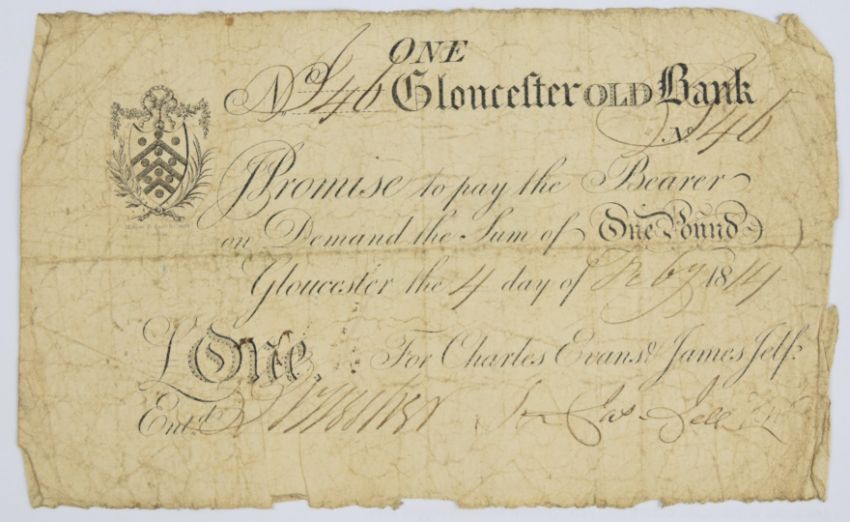 ONE
No 946 Gloucester OLD Bank
N 946
I Promise to pay the Bearer
on Demand the Sum of One Pound
Gloucester the 4 day of Feby 1814
£ One. For Charles Evans & James Jelf.
Entd Jas Jelf